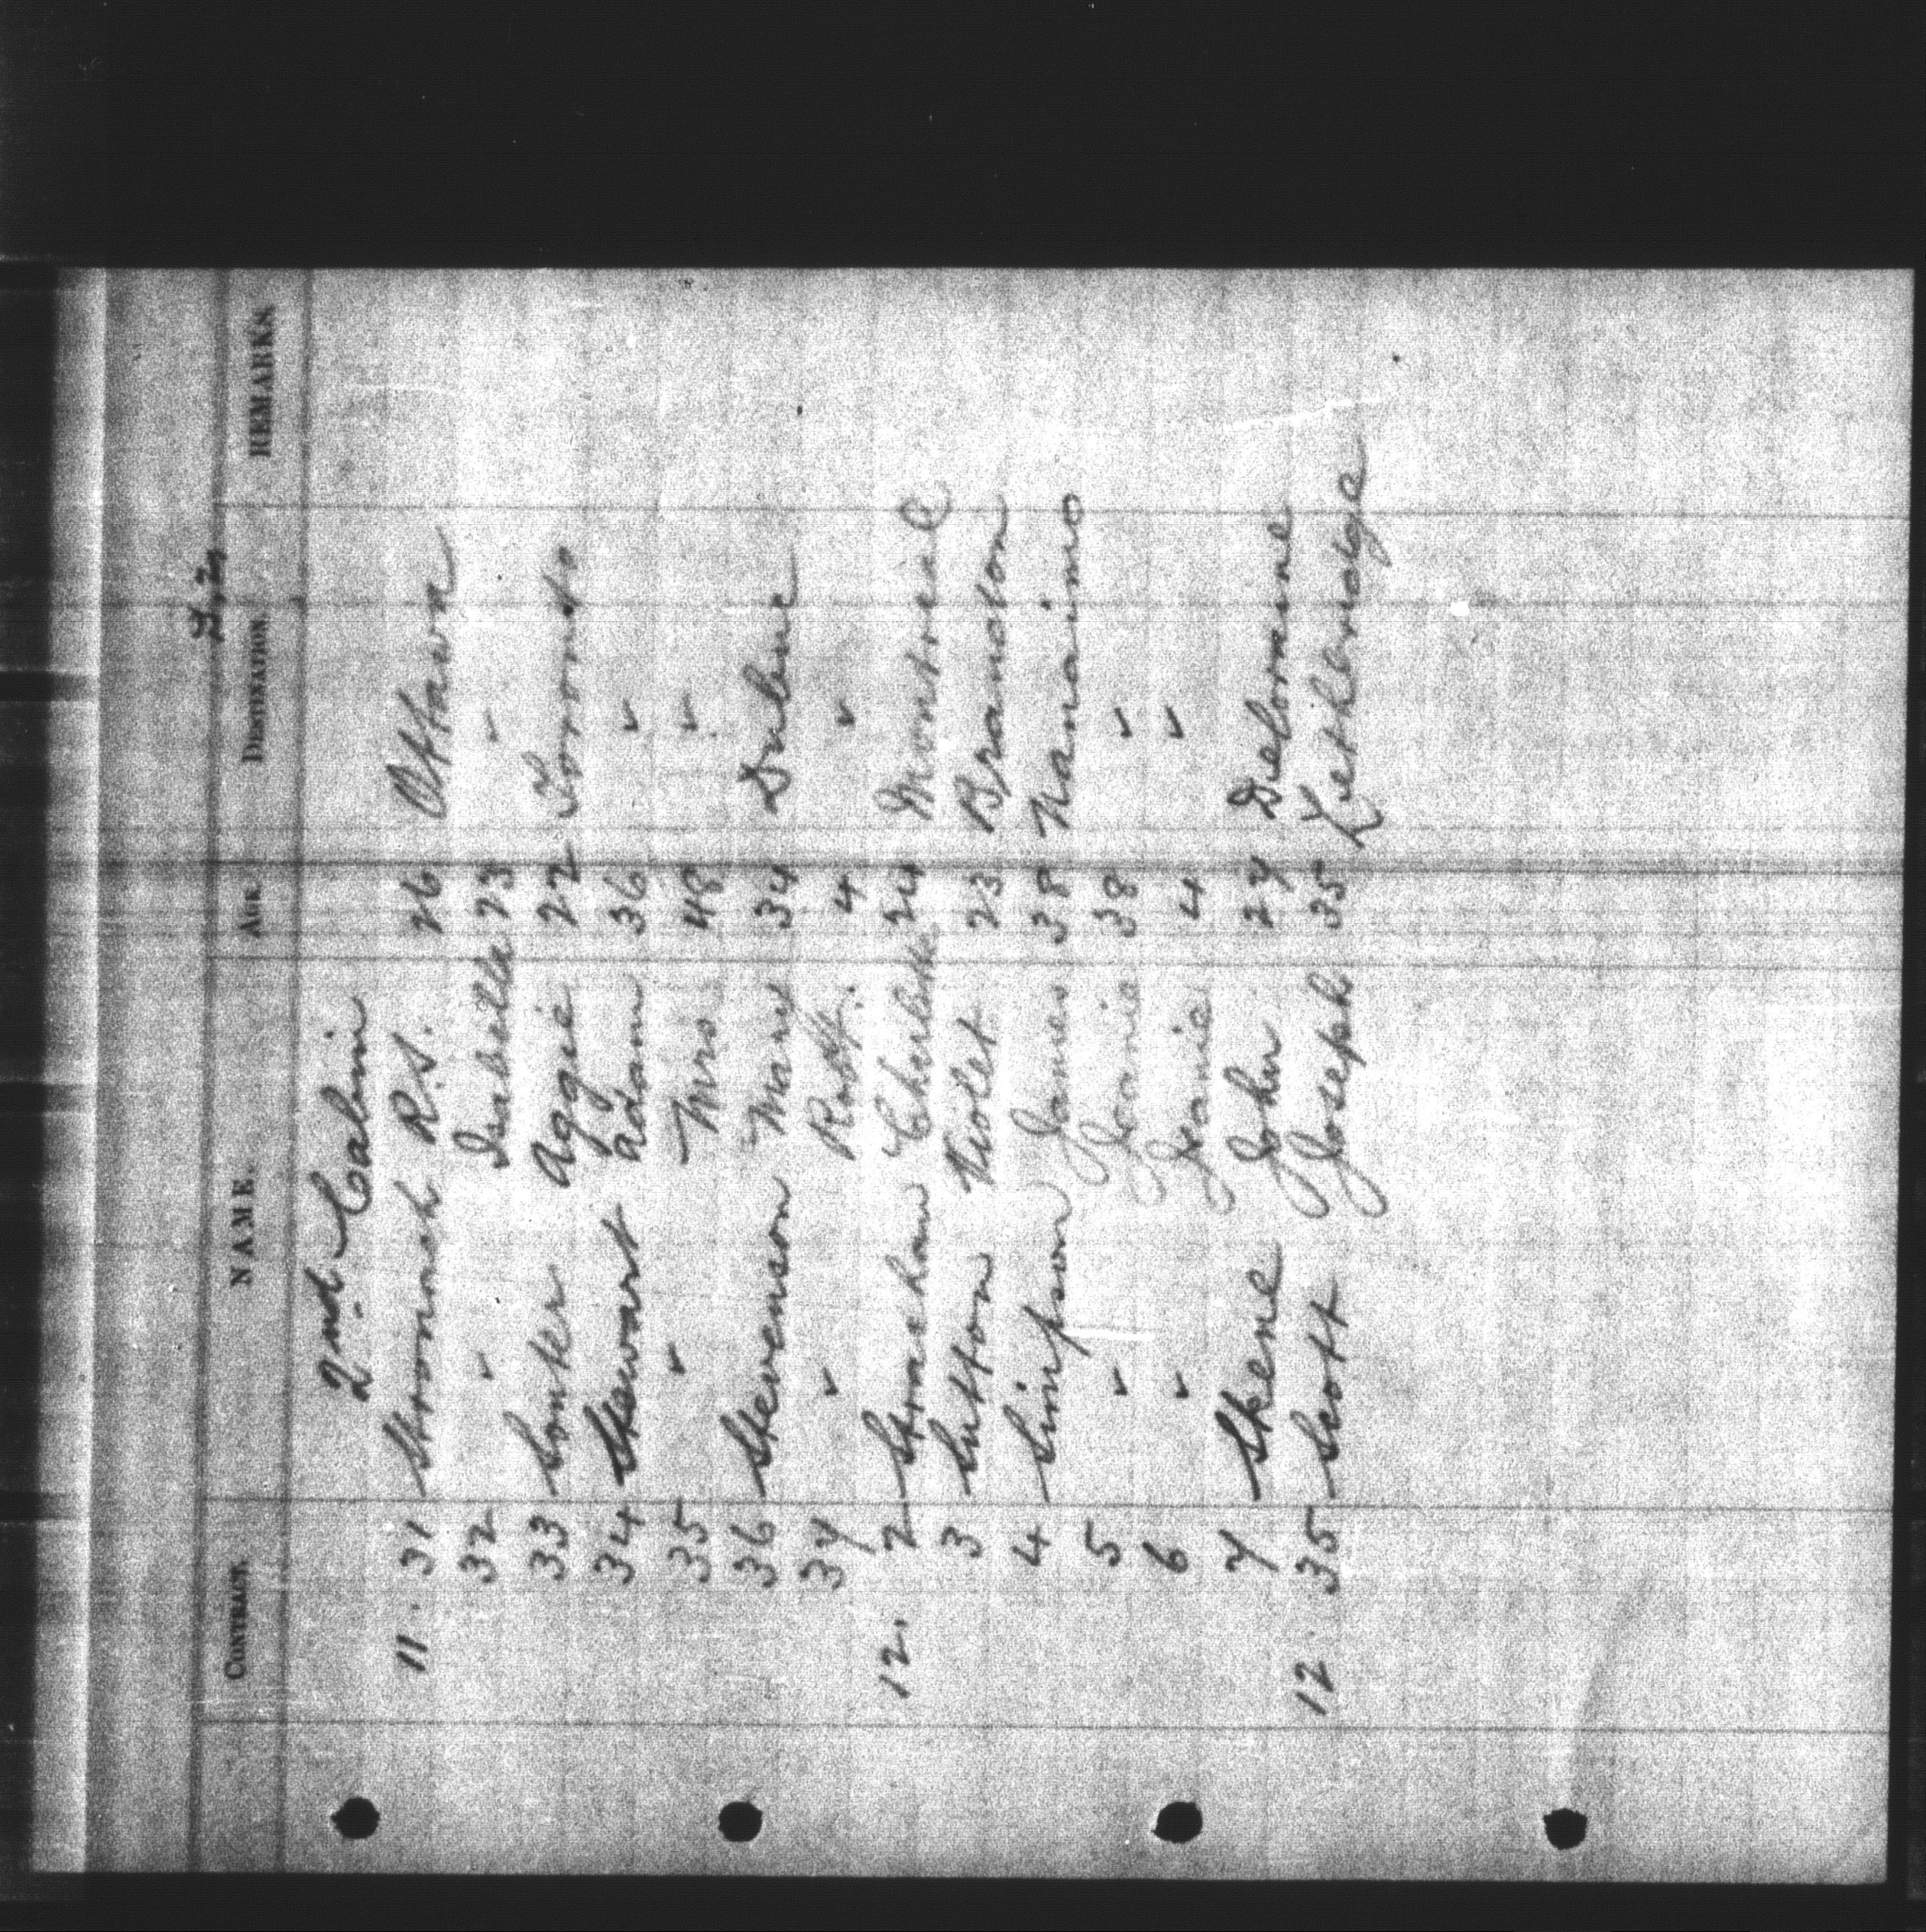 CONTRACT. NAME. AGE. DESTINATION. REMARKS.
2nd Cabin
11. 31 Stronach R.S. 26 Ottawa
32 " Isabella 23 "
33 Souter Aggie 22 Toronto
34 Stewart Adam 36 "
35 " Mrs 48 "
36 Stevenson Mary 34
37 " Robt. 4 "
12. 2 Strachan 24 Montreal
3 Sutton Violet 23 Brandon
4 Simpson James 38 Nanaimo
5 " Jeanie 38 "
6 " Jeanie 4 "
7 Skene John 27 Deloraine
12. 35 Scott Joseph 35 Lethbridge